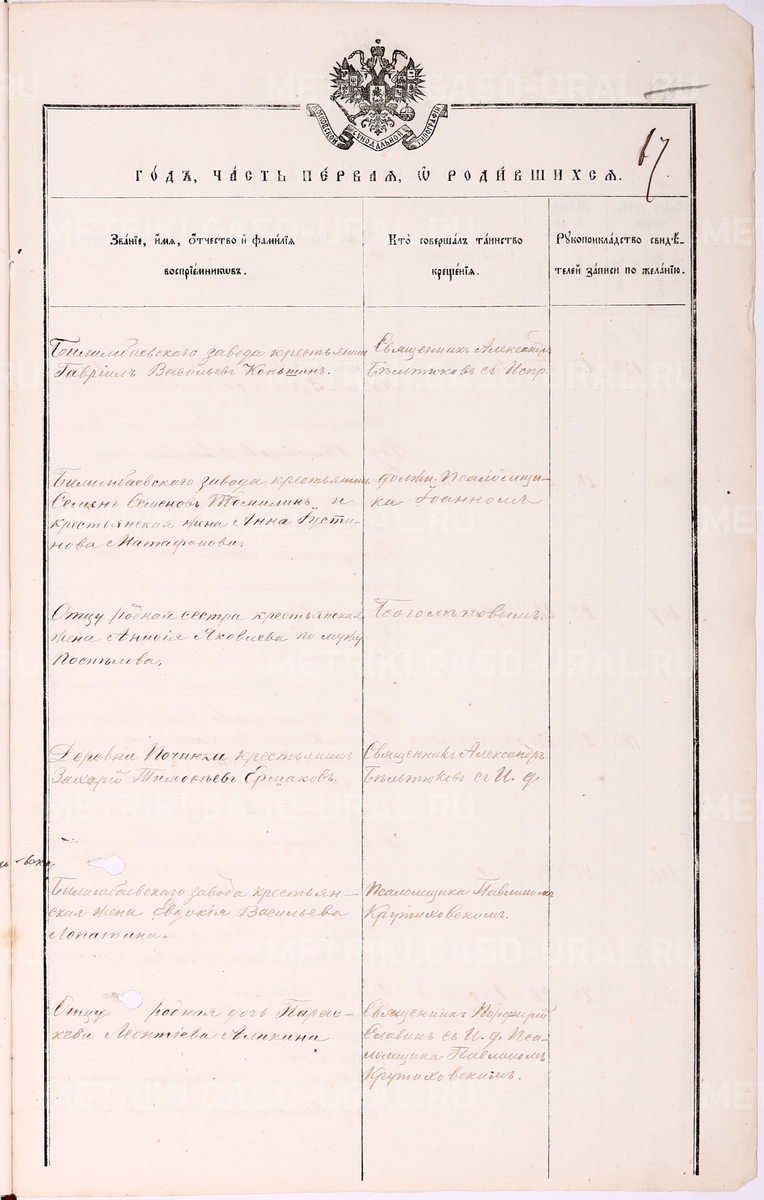 МОСКОВСКОЙ СѴНОДАЛЬНОЙ ТИПОГРАФІИ
67
ГО́ДЪ, ЧА́СТЬ ПЕ́РВАЯ, Ѽ РОДИ́ВШИХСЯ.
Зва́нїе, и҆́мя, ѻ҆́тчество и҆ фами́лїя
воспрїе́мникωвъ.
Кто̀ соверша́лъ та́инство
креще́нїѧ.
Рꙋкоприкла́дство свидѣ́-
телей за́писи по жела́нїю.
Билимбаевскаго завода крестьянин
Гавріилъ Васильевъ Коньшинъ.
Священникъ Александръ
Бѣльтюковъ съ Испр
Билимбаевскаго завода крестьянин
Семенъ Семеновъ Томилинъ и
крестьянская жена Анна Густи-
нова Матафонова.
должн. Псаломщи-
ка Іоанномъ
Отцу родная сестра крестьянская
жена Анисія Яковлева по мужу
Постылова.
Боголѣповымъ.
Деревни Починки крестьянинъ
Захарій Тимофѣевъ Ермаковъ.
Священникъ Александръ
Бѣльтюковъ съ И. д
Билимбаевскаго завода крестьян-
ская жена Евдокія Васильева
Лопатина.
Псаломщика Павлиномъ
Крутиховскимъ.
Отцу родная дочь Парас-
кева Леонтіева Аликина
Священникъ Порфирій
Славинъ съ И. д. Пса-
ломщика Павлиномъ
Крутиховскимъ.
METRIKI.GASO-URAL.RU